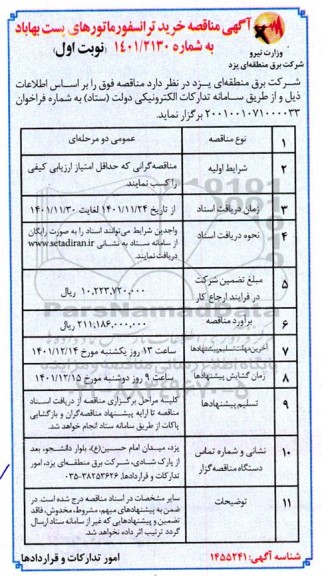 آگهی مناقصه خرید ترانسفورماتورهای پست بهاباد
به شماره ۱۴۰۱/۲۱۳۰ (نوبت اول)
وزارت نیرو
شرکت برق منطقه‌ای یزد
شرکت برق منطقه‌ای یزد در نظر دارد مناقصه فوق را بر اساس اطلاعات
ذیل و از طریق سامانه تدارکات الکترونیکی دولت (ستاد) به شماره فراخوان
۲۰۰۱۰۰۱۰۷۱۰۰۰۰۳۳ برگزار نماید.
۱ نوع مناقصه عمومی دو مرحله‌ای
۲ شرایط اولیه مناقصه‌گرانی که حداقل امتیاز ارزیابی کیفی
را کسب نمایند.
۳ زمان دریافت اسناد از تاریخ ۱۴۰۱/۱۱/۲۴ لغایت ۱۴۰۱/۱۱/۳۰
۴ نحوه دریافت اسناد واجدین شرایط می‌توانند اسناد را به صورت رایگان
از سامانه ستاد به نشانی www.setadiran.ir
دریافت نمایند.
۵ مبلغ تضمین شرکت
در فرایند ارجاع کار ۱۰,۲۲۳,۷۲۰,۰۰۰ ریال
۶ برآورد مناقصه ۲۱۱,۱۸۶,۰۰۰,۰۰۰ ریال
۷ آخرین مهلت تسلیم پیشنهادها ساعت ۱۳ روز یکشنبه مورخ ۱۴۰۱/۱۲/۱۴
۸ زمان گشایش پیشنهادها ساعت ۹ روز دوشنبه مورخ ۱۴۰۱/۱۲/۱۵
۹ تسلیم پیشنهادها کلیه مراحل برگزاری مناقصه از دریافت اسناد
مناقصه تا ارایه پیشنهاد مناقصه‌گران و بازگشایی
پاکات از طریق سامانه ستاد انجام خواهد شد.
۱۰ نشانی و شماره تماس
دستگاه مناقصه‌گزار
یزد، میدان امام حسین(ع)، بلوار دانشجو، بعد
از پارک شادی، شرکت برق منطقه‌ای یزد، امور
تدارکات و قراردادها. ۳۸۲۵۳۶۲۶-۰۳۵
۱۱ توضیحات سایر مشخصات در اسناد مناقصه درج شده است. در
ضمن به پیشنهادهای مبهم، مشروط، مخدوش، فاقد
تضمین و پیشنهادهایی که غیر از سامانه ستاد ارسال
گردد ترتیب اثر داده نخواهد شد.
شناسه آگهی: ۱۴۵۵۲۴۱ امور تدارکات و قراردادها